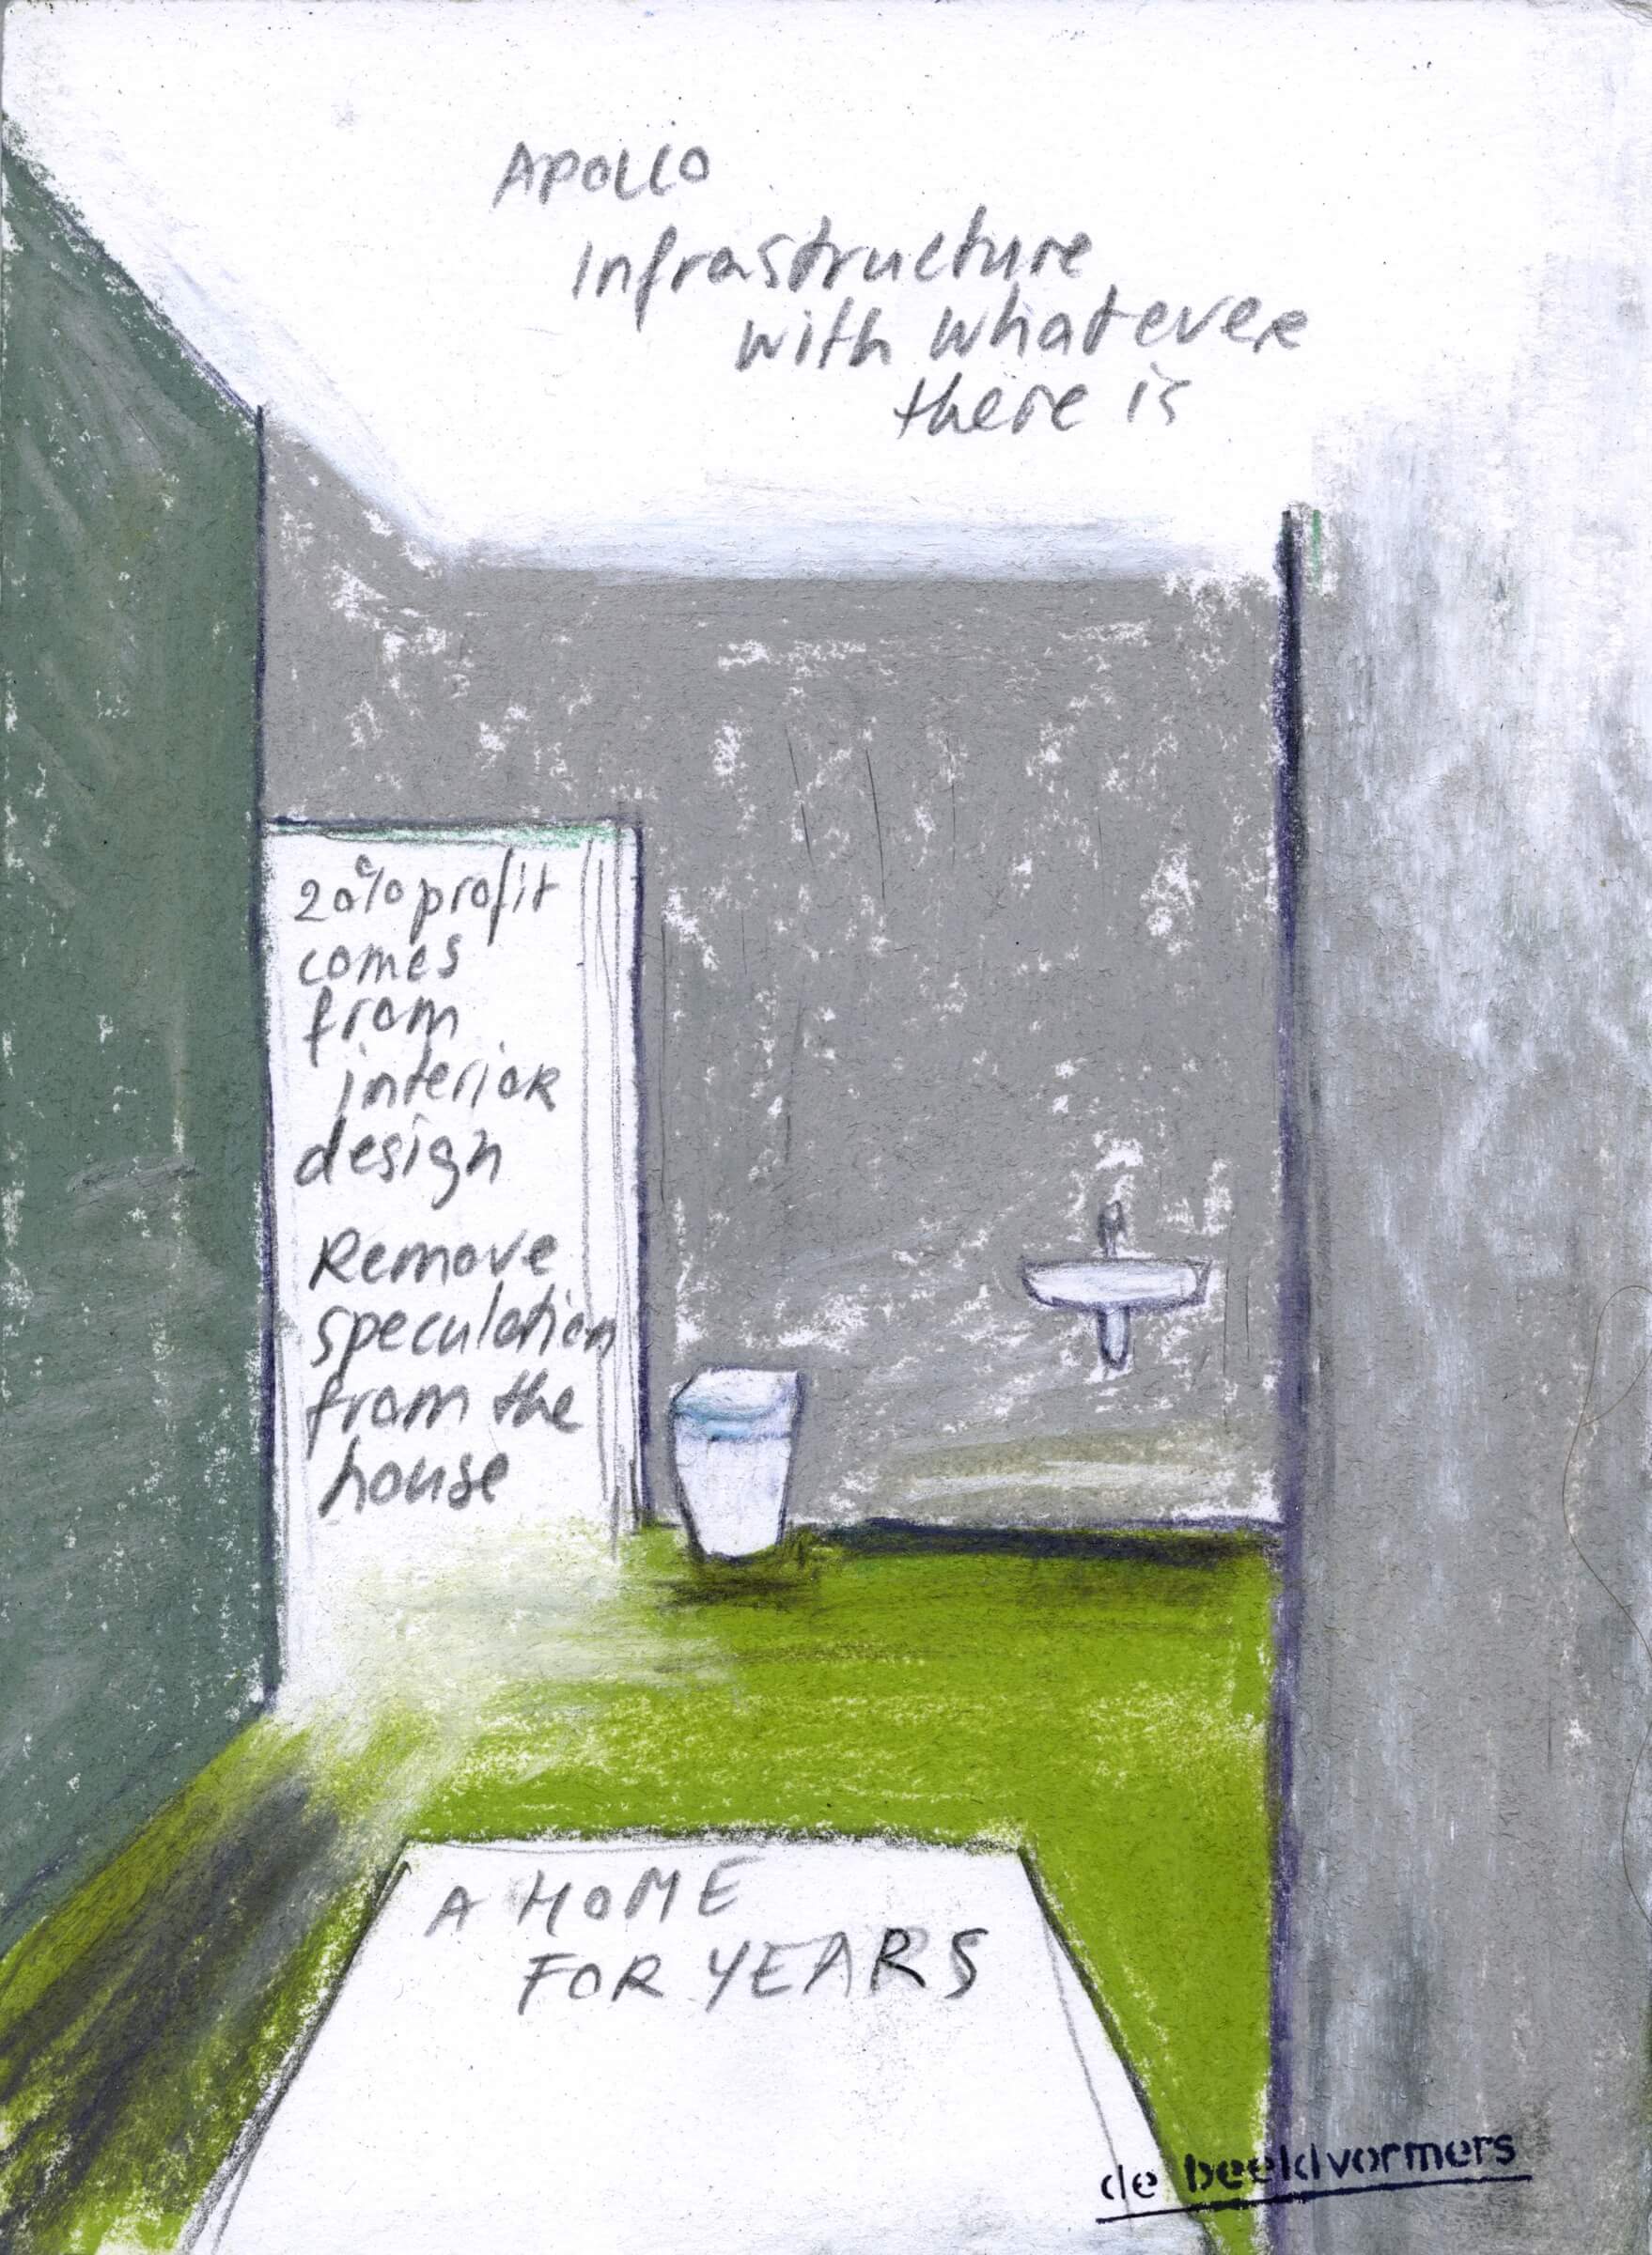 APOLLO
Infrastructure
with whatever
there is
20% profit
comes
from
interior
design
Remove
speculation
from the
house
A HOME
FOR YEARS
de beeldvormers